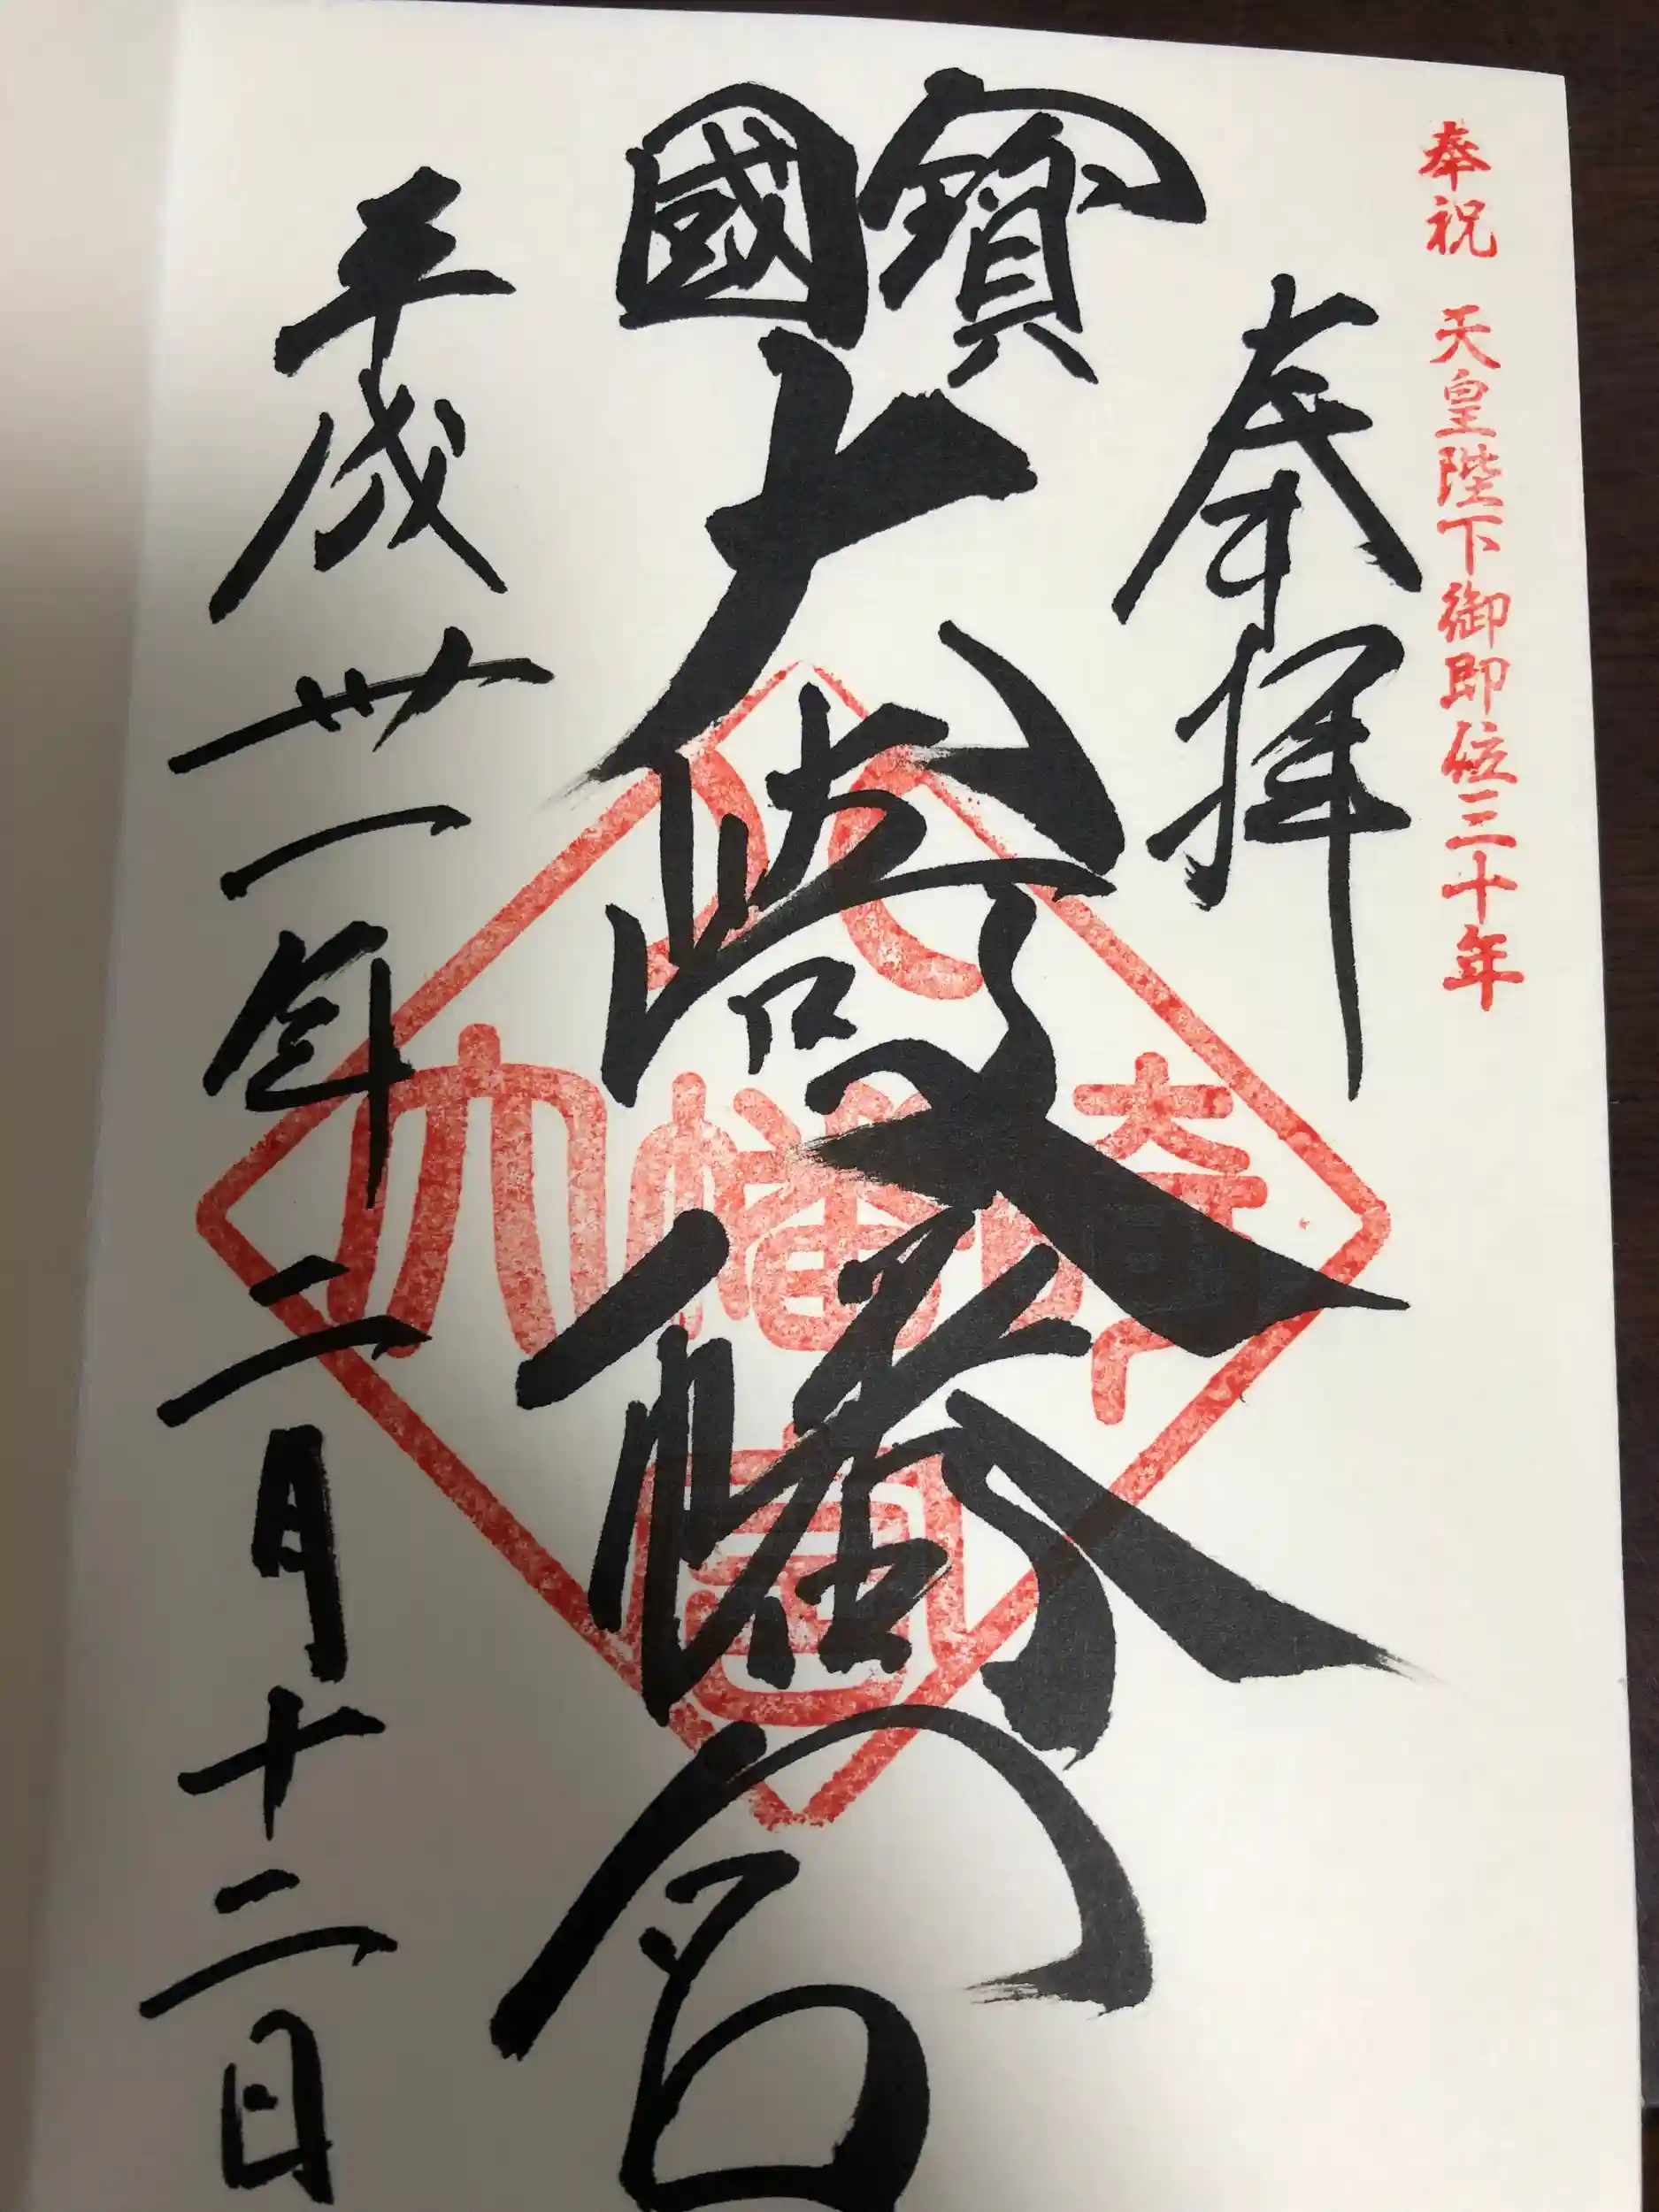 奉祝 天皇陛下御即位三十年
奉拝
國寶
大崎八幡宮
平成卅一年二月十二日
大崎八幡宮